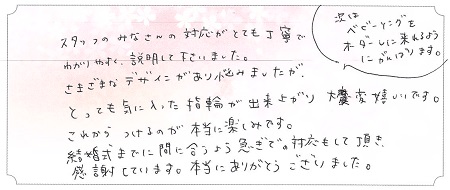 スタッフのみなさんの対応がとても丁寧で
わかりやすく、説明して下さいました。
さまざまなデザインがあり悩みましたが、
とっても気に入った指輪が出来上がり大変嬉しいです。
これからつけるのが本当に楽しみです。
結婚式までに間に合うよう急ぎでの対応もして頂き、
感謝しています。本当にありがとうございました。
次は
ベビーリングを
オーダーしに来れるよう
にがんばります。